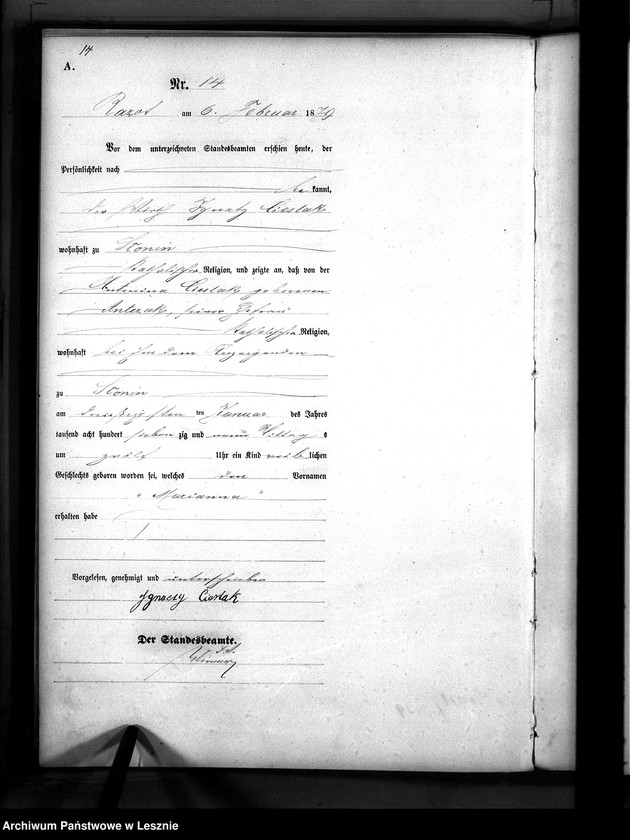 14
A.
Nr. 14
Razot am 6. Februar 1879
Vor dem unterzeichneten Standesbeamten erschien heute, der
Persönlichkeit nach
kannt,
der Wirth Ignatz Cieslak
wohnhaft zu Konin
katholischer Religion, und zeigte an, daß von der
Antonina Cieslak geborenen
Antczak, seiner Ehefrau
katholischer Religion,
wohnhaft bei ihm dem Anzeigenden
zu Konin
am dreißigsten ten Januar des Jahres
tausend acht hundert sieben zig und neun Mittag s
um zwölf Uhr ein Kind weib lichen
Geschlechts geboren worden sei, welches den Vornamen
"Marianna"
erhalten habe
Vorgelesen, genehmigt und unterschrieben
Ignaczy Cieslak
Der Standesbeamte.
Archiwum Państwowe w Lesznie